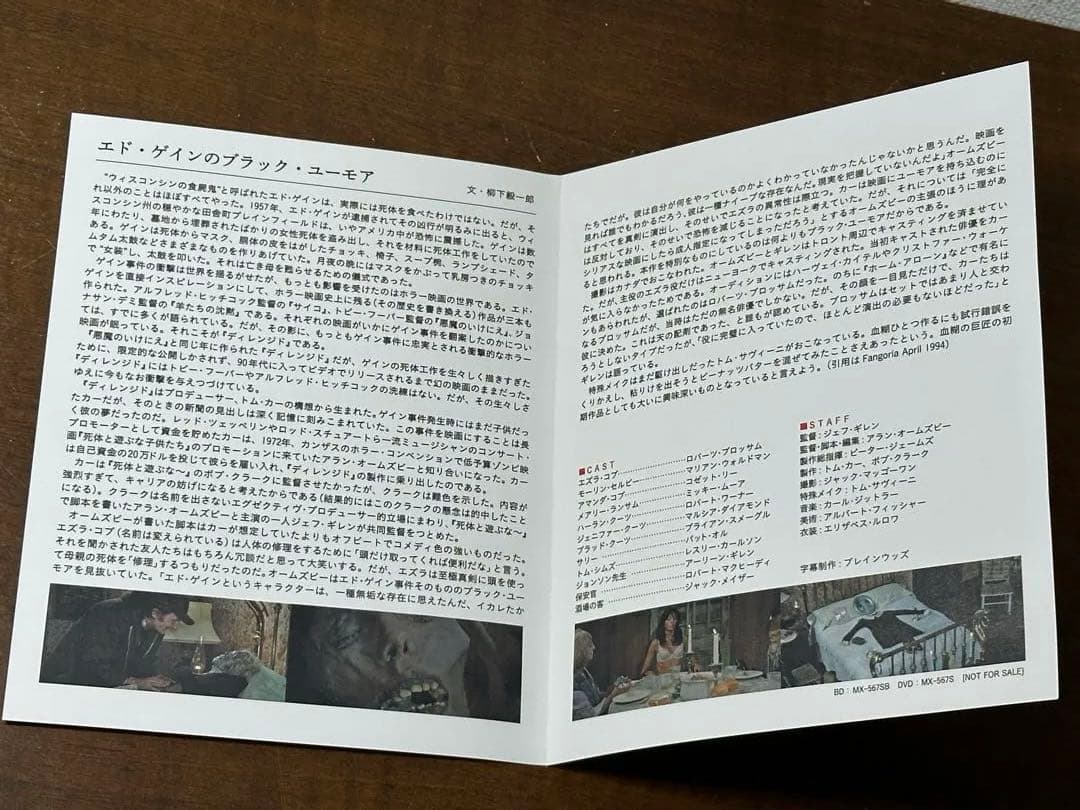 エド・ゲインのブラック・ユーモア
文・柳下毅一郎
"ウィスコンシンの食屍鬼"と呼ばれたエド・ゲインは、実際には死体を食べたわけではない。だが、そ
れ以外のことはほぼすべてやった。1957年、エド・ゲインが逮捕されてその凶行が明るみに出ると、ウィ
スコンシン州の穏やかな田舎町プレインフィールドは、いやアメリカ中が恐怖に震撼した。ゲインは数
年にわたり、墓地から埋葬されたばかりの女性死体を盗み出し、それを材料に死体工作をしていたので
ある。ゲインは死体からマスク、胴体の皮をはがしたチョッキ、椅子、スープ椀、ランプシェード、タ
ムタム太鼓などさまざまなものを作りあげていた。月夜の晩にはマスクをかぶって乳房つきのチョッキ
で"女装"し、太鼓を叩いた。それは亡き母を甦らせるための儀式であった。
ゲイン事件の衝撃は世界を揺るがせたが、もっとも影響を受けたのはホラー映画の世界である。エド・
ゲインを直接インスピレーションにして、ホラー映画史上に残る(その歴史を書き換える)作品が三本も
作られた。アルフレッド・ヒッチコック監督の『サイコ』、トビー・フーパー監督の『悪魔のいけにえ』、ジョ
ナサン・デミ監督の『羊たちの沈黙』である。それぞれの映画がいかにゲイン事件を翻案したのかについ
ては、すでに多くが語られている。だが、その影に、もっともゲイン事件に忠実とされる衝撃的なホラー
映画が眠っている。それこそが『ディレンジド』である。
『悪魔のいけにえ』と同じ年に作られた『ディレンジド』だが、ゲインの死体工作を生々しく描きすぎた
ために、限定的な公開しかされず、90年代に入ってビデオでリリースされるまで幻の映画のままだった。
『ディレンジド』にはトビー・フーパーやアルフレッド・ヒッチコックの洗練はない。だが、その生々しさ
ゆえに今もなお衝撃を与えつづけている。
『ディレンジド』はプロデューサー、トム・カーの構想から生まれた。ゲイン事件発生時にはまだ子供だっ
たカーだが、そのときの新聞の見出しは深く記憶に刻みこまれていた。この事件を映画にすることは長
く彼の夢だったのだ。レッド・ツェッペリンやロッド・スチュアートら一流ミュージシャンのコンサート・
プロモーターとして資金を貯めたカーは、1972年、カンザスのホラー・コンベンションで低予算ゾンビ映
画『死体と遊ぶな子供たち』のプロモーションに来ていたアラン・オームズビーと知り合いになった。カー
は自己資金の20万ドルを投じて彼らを雇い入れ、『ディレンジド』の製作に乗り出したのである。
カーは『死体と遊ぶな〜』のボブ・クラークに監督させたかったが、クラークは難色を示した。内容が
強烈すぎて、キャリアの妨げになると考えたからである(結果的にはこのクラークの懸念は的中したこと
になる)。クラークは名前を出さないエグゼクティヴ・プロデューサー的立場にまわり、『死体と遊ぶな〜』
で脚本を書いたアラン・オームズビーと主演の一人ジェフ・ギレンが共同監督をつとめた。
オームズビーが書いた脚本はカーが想定していたよりもオフビートでコメディ色の強いものだった。
エズラ・コブ(名前は変えられている)は人体の修理をするために「頭だけ取ってくれば便利だな」と言う。
それを聞かされた友人たちはもちろん冗談だと思って大笑いする。だが、エズラは至極真剣に頭を使っ
て母親の死体を「修理」するつもりだったのだ。オームズビーはエド・ゲイン事件そのもののブラック・ユー
モアを見抜いていた。「エド・ゲインというキャラクターは、一種無垢な存在に思えたんだ、イカレたか
たちでだが。彼は自分が何をやっているのかよくわかっていなかったんじゃないかと思うんだ。映画を
見れば誰でもわかるだろう、彼は一種ナイーブな存在なんだ。現実を把握していないんだよ」オームズビー
はすべてを真剣に演出し、そのせいでエズラの異常性は際立つ。カーは映画にユーモアを持ち込むのに
は反対しており、そのせいで恐怖を減じることになったと考えていた。だが、それについては「完全に
シリアスな映画にしたら成人指定になってしまっただろう」とするオームズビーの主張のほうに理があ
ると思われる。本作を特別なものにしているのは何よりもブラック・ユーモアだからである。
撮影はカナダでおこなわれた。オームズビーとギレンはトロント周辺でキャスティングを済ませてい
たが、主役のエズラ役だけはニューヨークでキャスティングされた。当初キャストされた俳優をカー
が気に入らなかったためである。オーディションにはハーヴェイ・カイテルやクリストファー・ウォーケ
ンもあらわれたが、選ばれたのはロバーツ・ブロッサムだった。のちに『ホーム・アローン』などで有名に
なるブロッサムだが、当時はただの無名俳優でしかない。だが、その顔を一目見ただけで、カーたちは
彼に決めた。これは天の配剤であった、と誰もが認めている。ブロッサムはセットではあまり人と交わ
ろうとしないタイプだったが、「役に完璧に入っていたので、ほとんど演出の必要もないほどだった」と
ギレンは語っている。
特殊メイクはまだ駆け出しだったトム・サヴィーニがおこなっている。血糊ひとつ作るにも試行錯誤を
くりかえし、粘りけを出そうとピーナッツバターを混ぜてみたことさえあったという。血糊の巨匠の初
期作品としても大いに興味深いものとなっていると言えよう。(引用は Fangoria April 1994)
■CAST
エズラ・コブ……………ロバーツ・ブロッサム
モーリン・セルビー……………マリアン・ウォルドマン
アマンダ・コブ……………コゼット・リー
メアリー・ランサム……………ミッキー・ムーア
ハーラン・クーツ……………ロバート・ワーナー
ジェニファー・クーツ……………マルシア・ダイアモンド
ブラッド・クーツ……………ブライアン・スメーグル
サリー……………パット・オル
トム・シムズ……………レスリー・カールソン
ジョンソン先生……………アーリーン・ギレン
保安官……………ロバート・マクヒーディ
酒場の客……………ジャック・メイザー
■STAFF
監督:ジェフ・ギレン
監督・脚本・編集:アラン・オームズビー
製作総指揮:ピーター・ジェームズ
製作:トム・カー、ボブ・クラーク
撮影:ジャック・マッゴーワン
特殊メイク:トム・サヴィーニ
音楽:カール・ジットラー
美術:アルバート・フィッシャー
衣装:エリザベス・ルロワ
字幕制作:ブレインウッズ
BD:MX-567SB DVD:MX-567S [NOT FOR SALE]